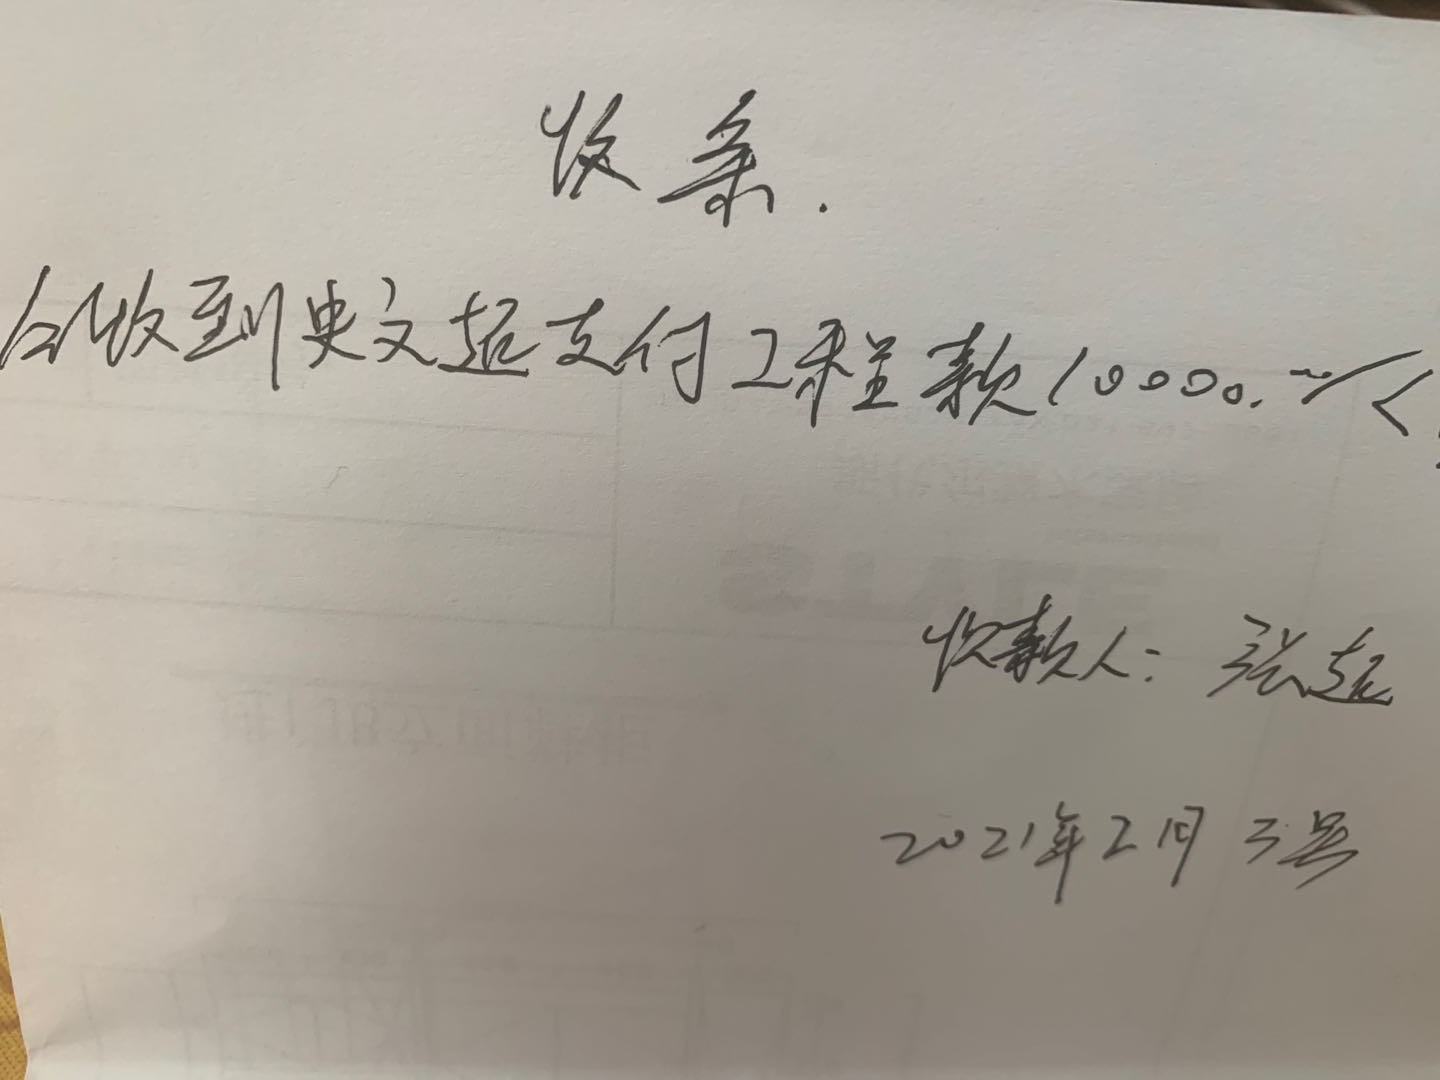 收条.
今收到史文超支付工程款10000.
收款人: 张超
2021年2月3号